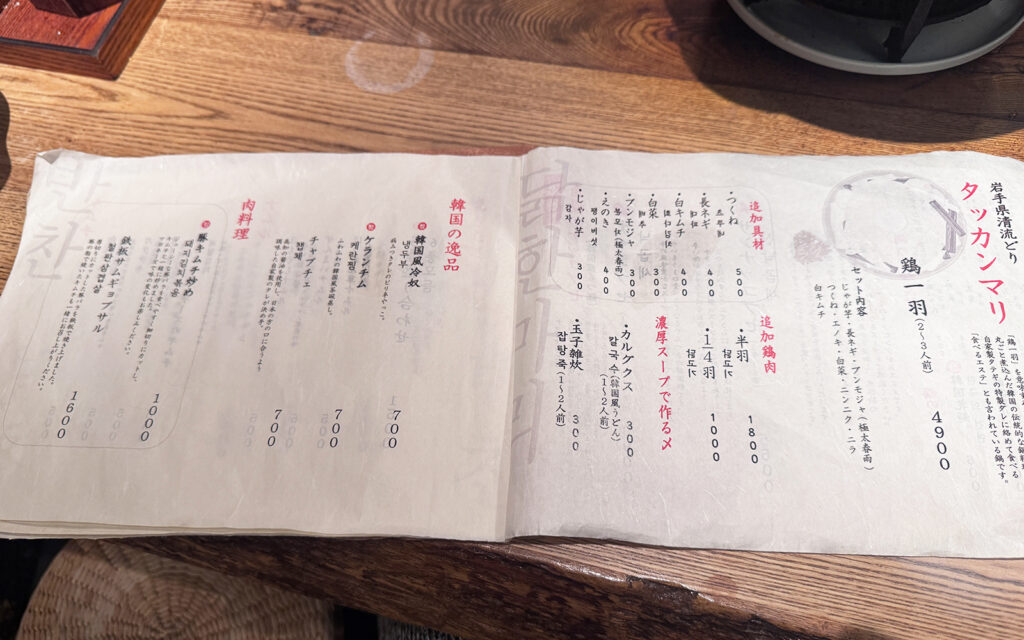 岩手県清流どり
タッカンマリ
自家製タテギの特製ダレに絡めて食べる
「食べるエステ」とも言われている鍋です。
鶏一羽(2〜3人前) 4900
セット内容
じゃが芋・長ネギ・ブンモジャ(極太春雨)
つくね・エノキ・白菜・ニンニク・ニラ
白キムチ
追加具材
・つくね 500
・長ネギ 400
・白キムチ 400
・白菜 300
・ブンモジャ (極太春雨) 300
・えのき 팽이버섯 400
・じゃが芋 감자 300
追加鶏肉
・半羽 1800
・1/4羽 1000
濃厚スープで作る〆
・カルグクス 300
칼국수(韓国風うどん)
(1〜2人前)
・玉子雑炊 300
잡탕죽(1〜2人前)
닭한마리
韓国の逸品
韓国風冷奴 700
냉두부
ケランチム 700
계란찜
ふわふわの韓国風茶碗蒸し。
チャプチェ 700
잡채
肉料理
豚キムチ炒め 1000
돼지김치볶음
鉄板サムギョプサル 1600
철판삼겹살
반찬